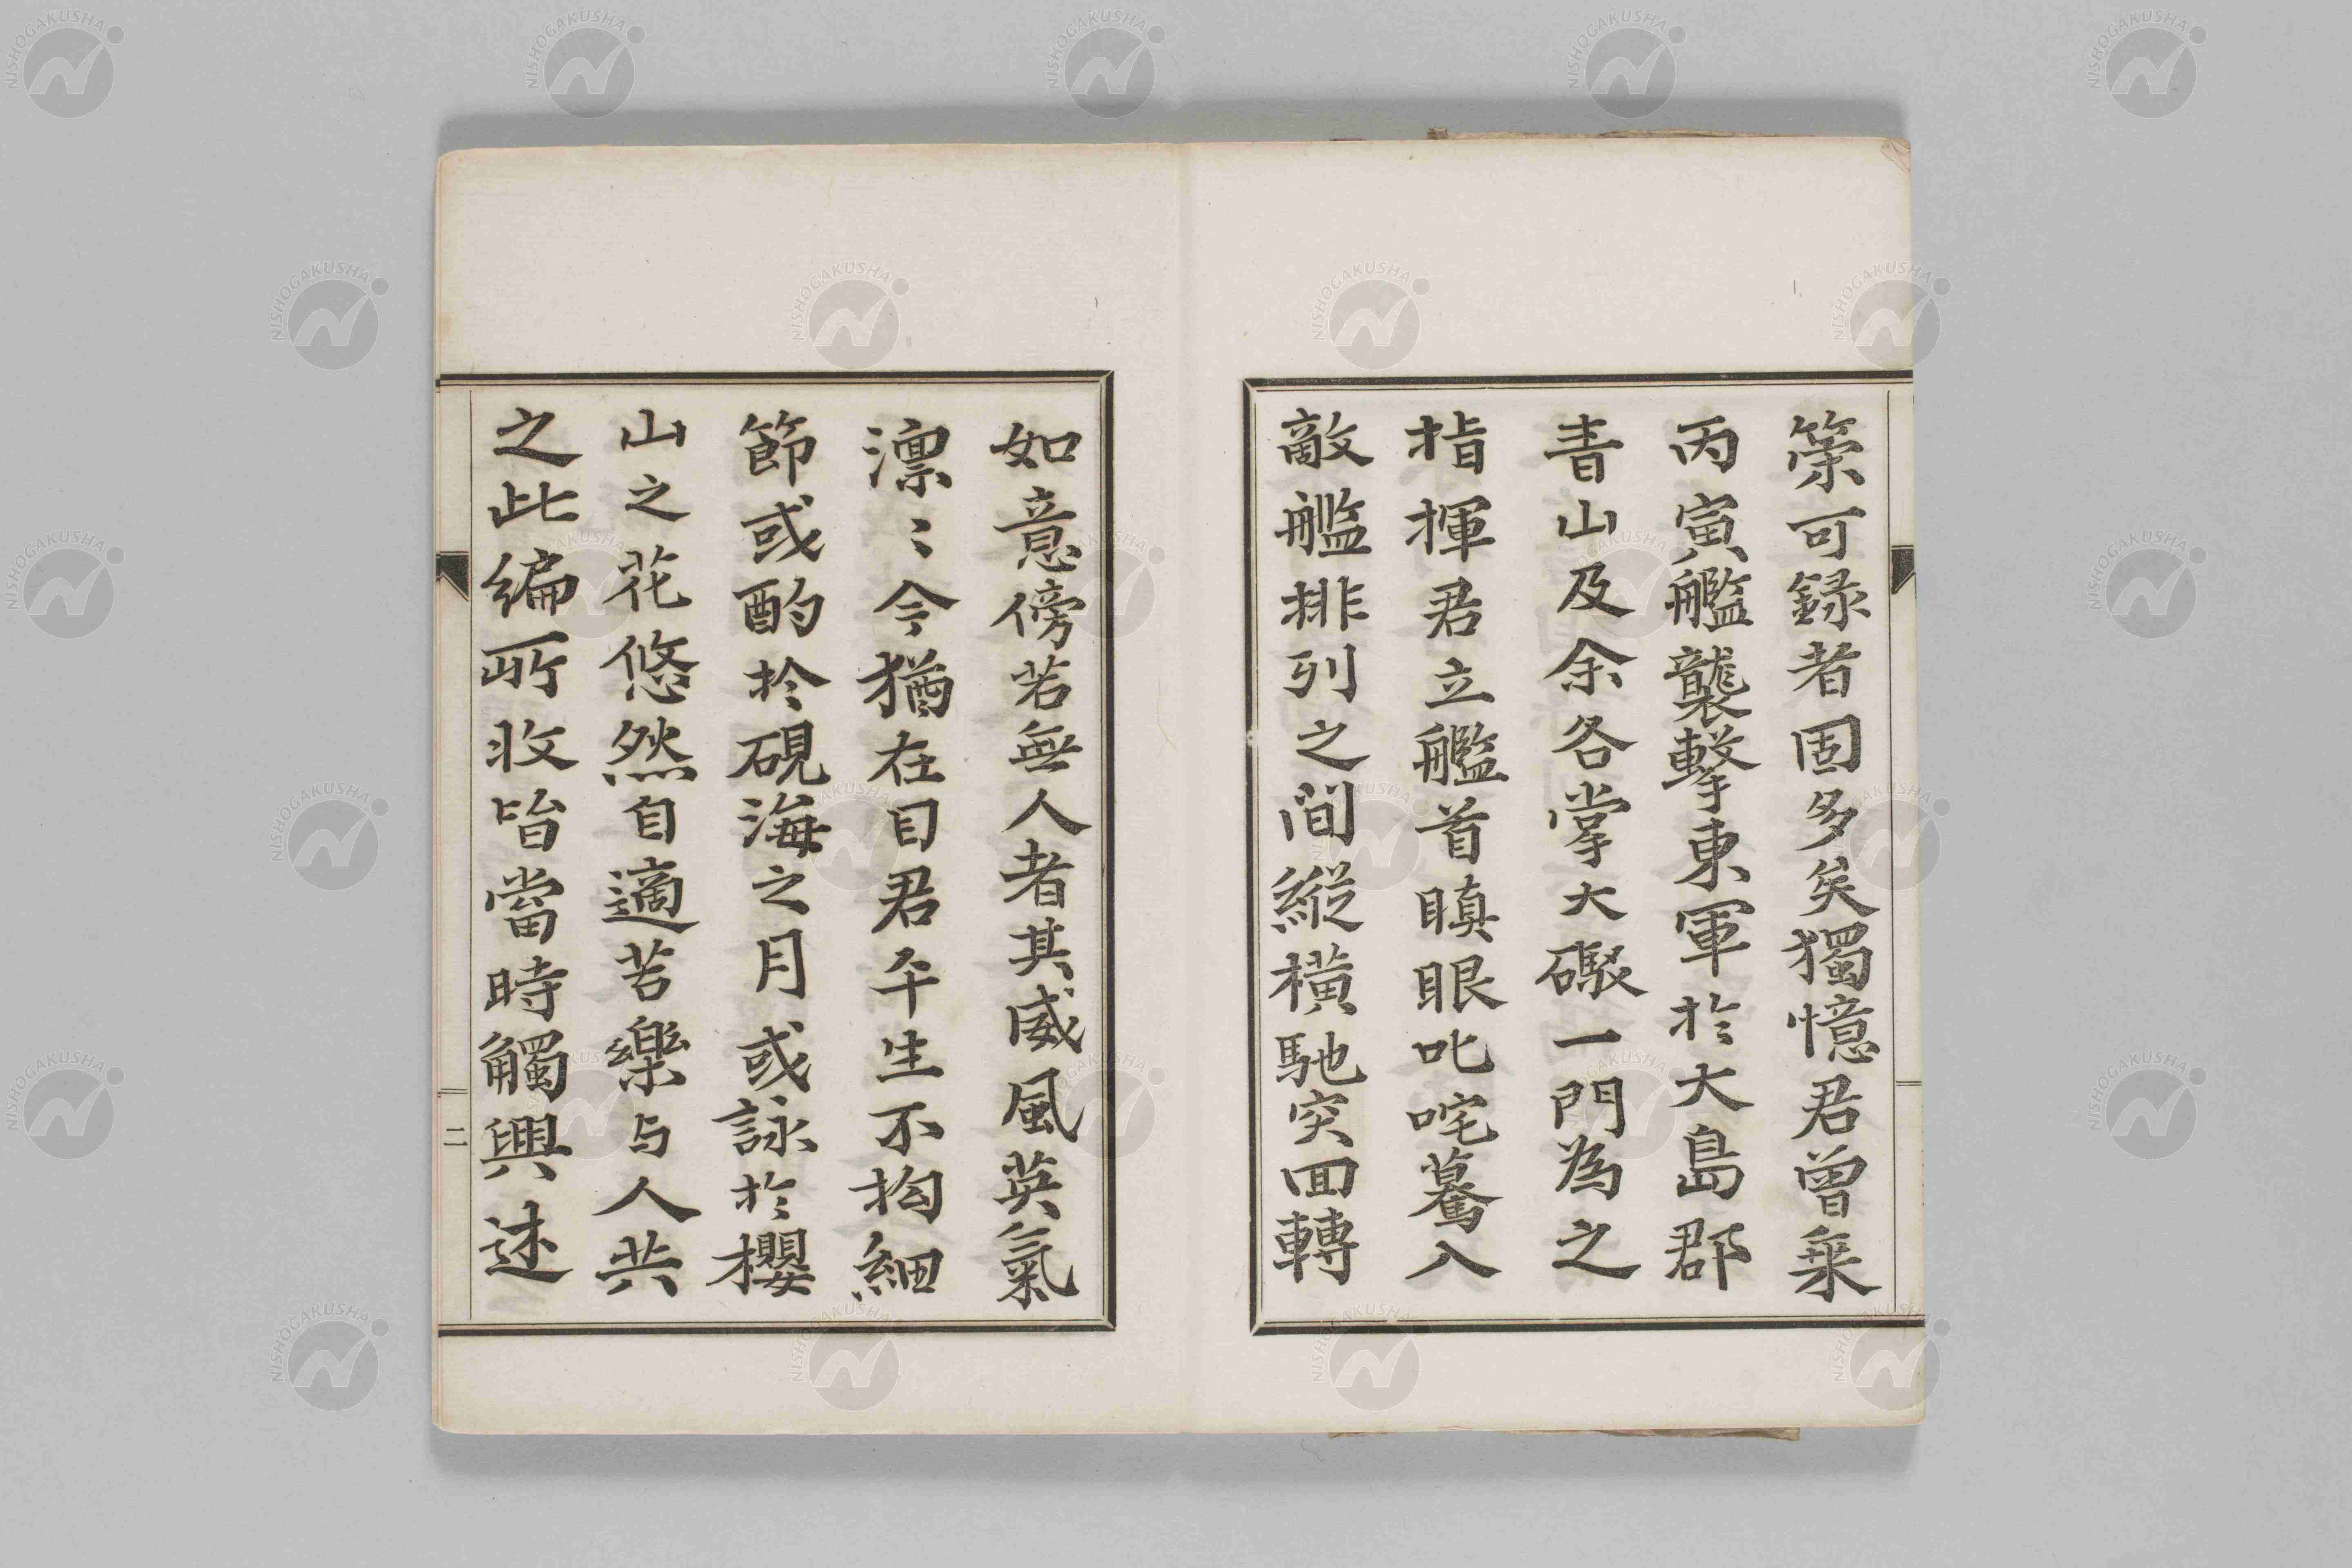 策可録者固多矣獨憶君曾乗
丙寅艦襲撃東軍於大島郡
青山及余各掌大礮一門為之
指揮君立艦首瞋眼叱咤驀入
敵艦排列之間縦横馳突回轉
如意傍若無人者其威風英氣
凛〻今猶在目君平生不拘細
節或酌於硯海之月或詠於櫻
山之花悠然自適苦樂与人共
之此編所收皆當時觸興述
二
NISHOGAKUSHA